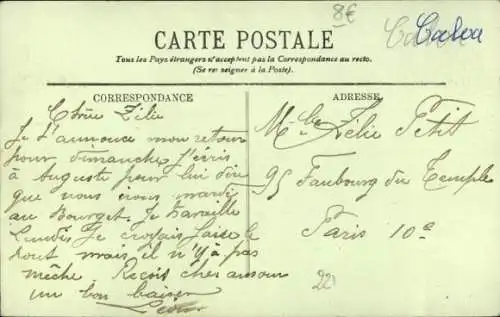 8€
Calva
CARTE POSTALE
Tous les Pays étrangers n'acceptent pas la Correspondance au recto.
(Se renseigner à la Poste).
CORRESPONDANCE
Chère Zélie
Je t'annonce mon retour
pour dimanche. J'écris
à Auguste pour lui dire
que nous irons mardi
au Bourget. Je travaille
Lundi. Je croyais faire le
pont mais il n'y a pas
mèche. Reçois cher amour
un bon baiser
Léon
ADRESSE
Mlle Zélie Petit
95 Faubourg du Temple
Paris 10e
22